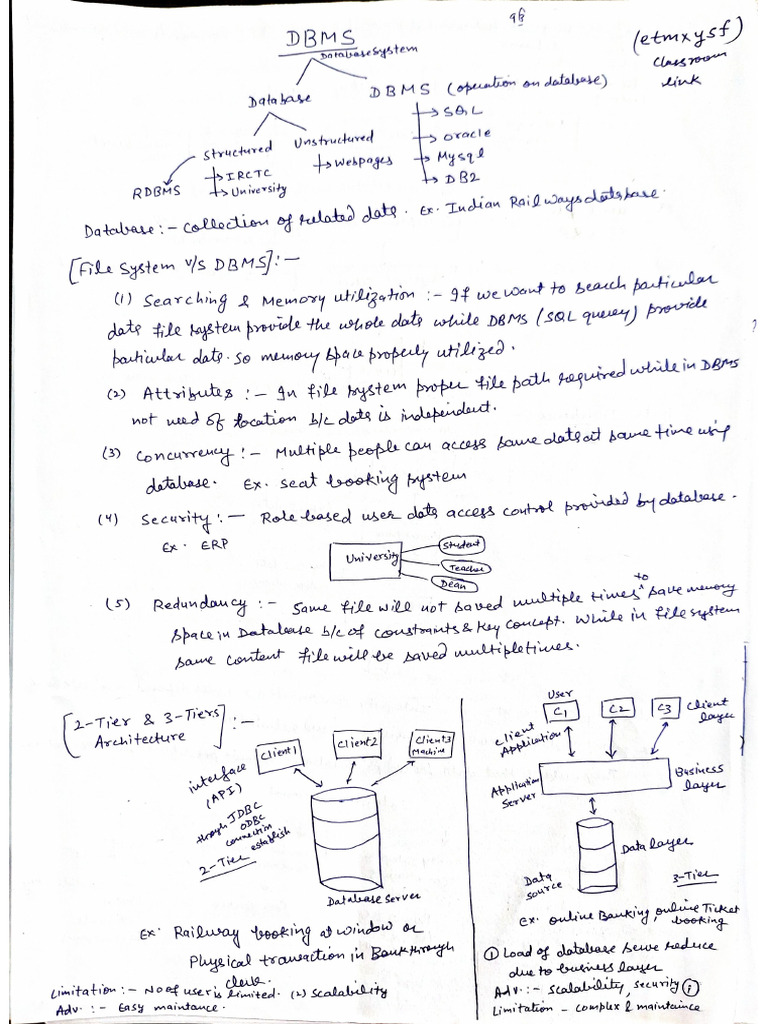 96
DBMS
Database System
(etmxysf)
Classroom
link
Database
DBMS (operation on database)
→ SQL
→ oracle
→ Mysql
→ DB2
Structured
→ IRCTC
→ University
Unstructured
→ Webpages
RDBMS
Database :- Collection of related data. Ex. Indian Railways database.
[File System v/s DBMS] :-
(1) Searching & Memory utilization :- If we want to search particular
data file system provide the whole data while DBMS (SQL query) provide
particular data. so memory space properly utilized.
(2) Attributes :- In file system proper file path required while in DBMS
not need of location b/c data is independent.
(3) Concurrency :- Multiple people can access same data at same time using
database. Ex. seat booking system
(4) Security :- Role based user data access control provided by database.
Ex. ERP
University
Student
Teacher
Dean
(5) Redundancy :- Same file will not saved multiple times to save memory
space in Database b/c of constraints & Key concept. While in file system
same content file will be saved multiple times.
[2-Tier & 3-Tiers
Architecture] :-
Client1
Client2
Client3
Machine
interface
(API)
through JDBC
ODBC
connection
establish
2-Tier
Database Server
Ex: Railway booking at window or
Physical transaction in Bank through
clerk.
Limitation :- No of user is limited. (2) Scalability
Adv. :- Easy maintance.
User
C1
C2
C3
Client
layer
Client
Application
Application
Server
Business
layer
Data layer
Data
source
3-Tier
Ex. online Banking, online Ticket
booking
① Load of database serve reduce
due to business layer
Adv. :- Scalability, security ①
Limitation - complex & maintaince